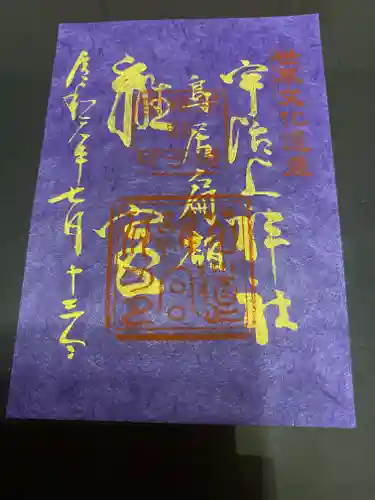 世界文化遺産
宇治上神社
鳥居扁額
離宮
令和六年七月十三日